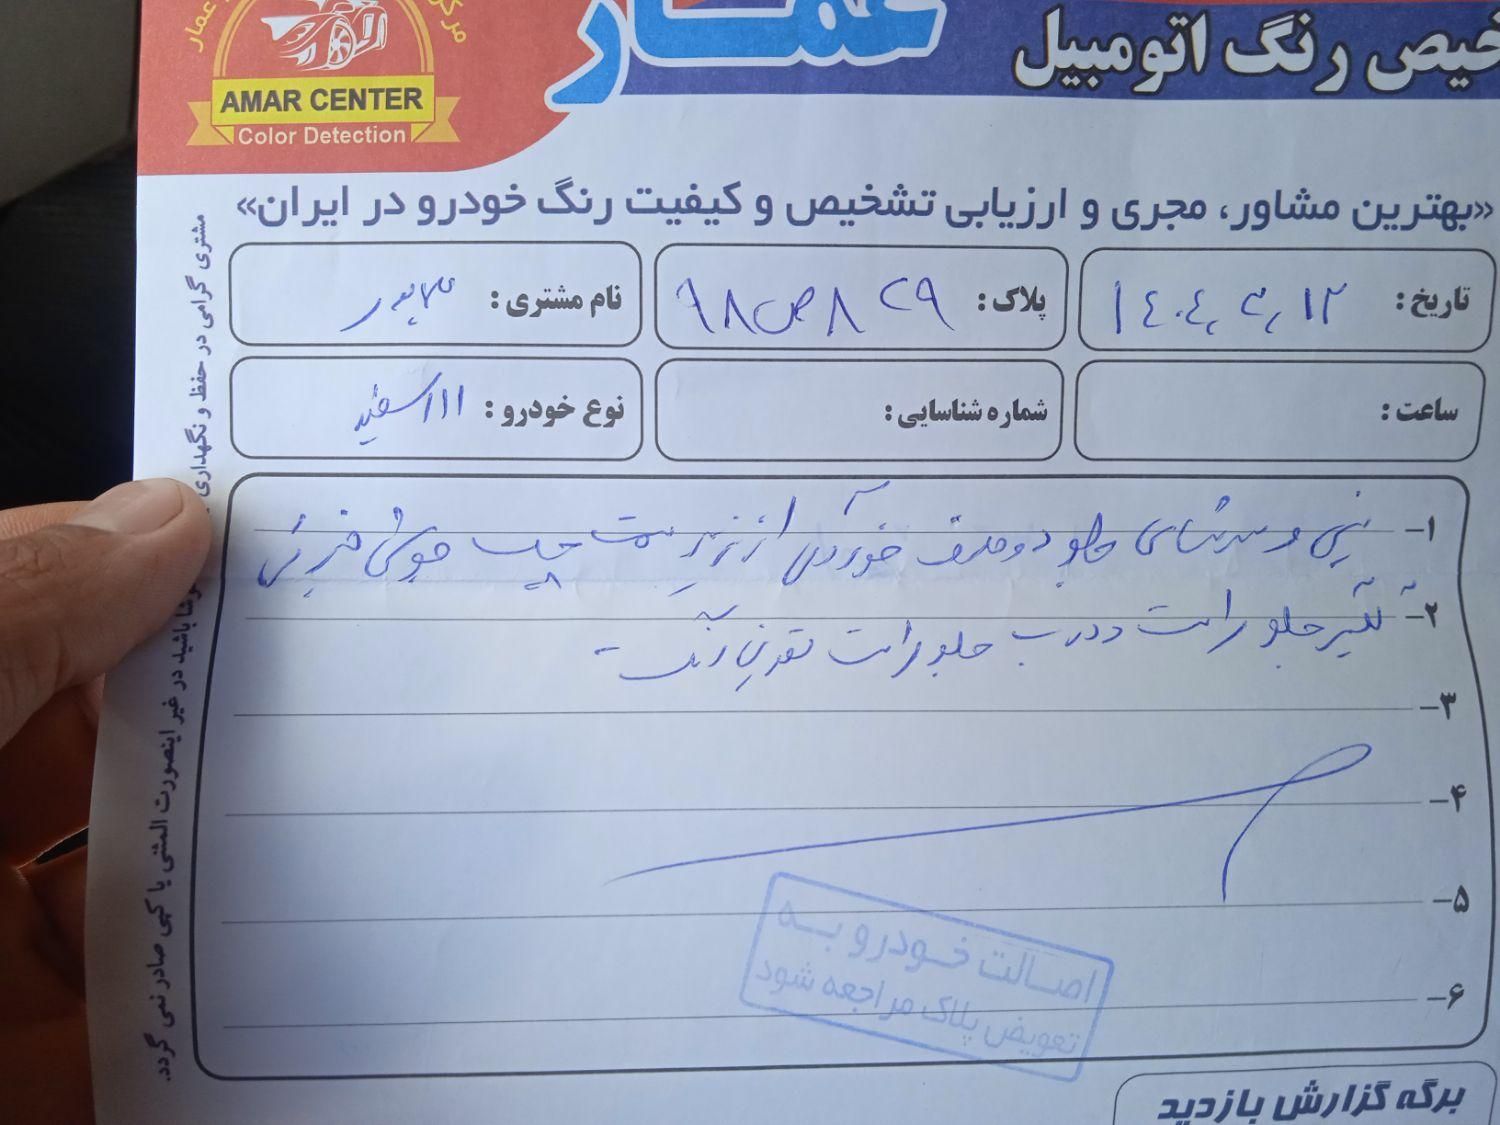 مرکز
عمار
AMAR CENTER
Color Detection
عمار
خیص رنگ اتومبیل
«بهترین مشاور، مجری و ارزیابی تشخیص و کیفیت رنگ خودرو در ایران»
تاریخ : ۱۴۰۴,۳,۱۲
پلاک : ۹۸ص۸۲۹
نام مشتری :
ساعت :
شماره شناسایی :
نوع خودرو : ۱۱۱ سفید
۱- سینی و جلو دو طرف خوردگی از زیر سمت چپ
۲- گلگیر جلو راست و درب جلو راست تعویض رنگ -
۳-
۴-
۵-
۶-
اصالت خودرو به
تعویض پلاک مراجعه شود
برگه گزارش بازدید
مشتری گرامی در حفظ و نگهداری
باشید در غیر اینصورت المثنی یا کپی صادر نمی گردد.